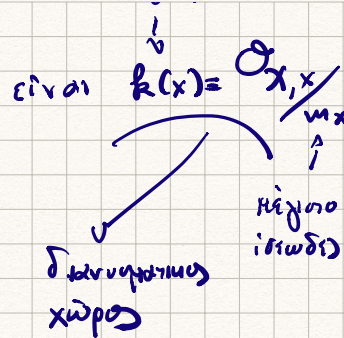 είναι k(x) = 𝒪_{X,x}/m_x
μέγιστο
ιδεώδες
διανυσματικός
χώρος